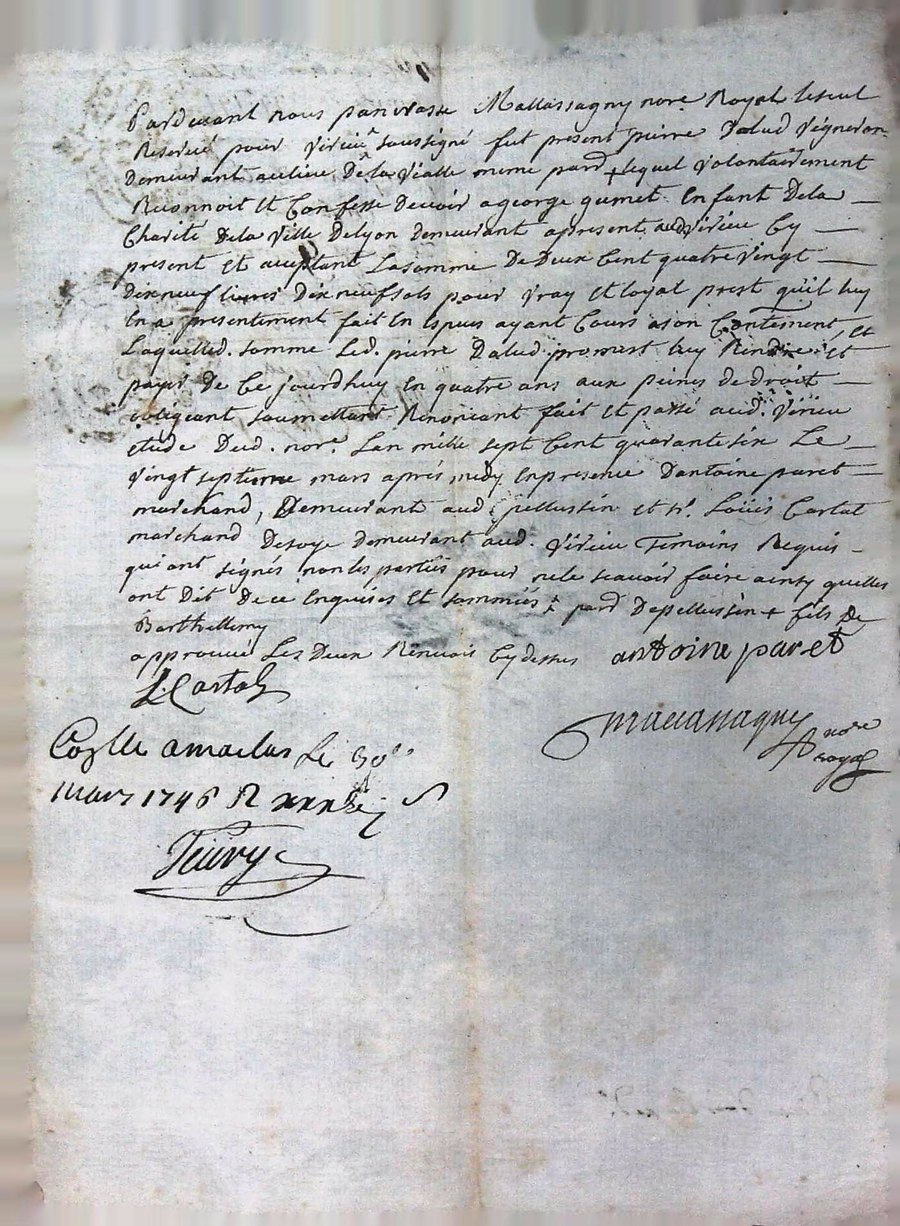 Pardevant nous panvrasse Mallassagny nore Royal leseul
Reservé pour Virieu soussigné fut present pierre Dalud Vigneron
Demeurant aulieu Dela Vialle meme pard + lequel volontairement
Reconnoit et Confesse Devoir a george gumet Enfant Dela
Charité Dela Ville Delyon Demeurant apresent aud Virieu Cy
present et aceptant Lasomme De Deux Cent quatre Vingt
Dix neuf livres Dix neuf sols pour Vray et loyal prest quil luy
En a presentement fait En espices ayant Cours ason Contement, et
Laquelled. somme Led. pierre Dalud promest luy Rendre et
payer De Ce jourdhuy En quatre ans aux peines de droit
obligeant soumettant Renoncant fait et passé aud. Virieu
étude Dud. nore. Lan mille sept Cent quarante six Le
Vingt septieme mars aprés midy Enpresence Dantoine paret
marchand, Demeurant aud pellussin et sr. Loüis Cartal
marchand Desoye Demeurant aud. Virieu Temoins Requis
qui ont signés non les parties pour nele scavoir faire ainsy quelles
ont Dit De ce Enquises et sommeés + pard Depellussin + fils de
Barthellemy
approuvé Les Deux Renvois Cy dessus antoine paret
L. Cartal
Mallassagny nore
royal
Coylle amaclas Le 30e
mars 1746 R